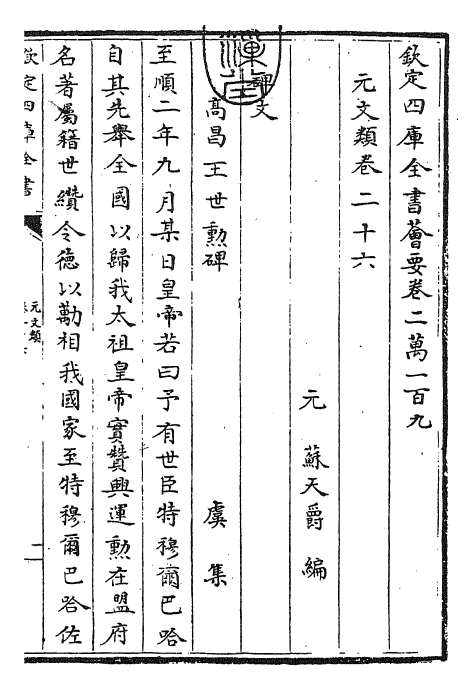 欽定四庫全書薈要卷二萬一百九
元文類卷二十六
元　蘇天爵　編
碑文
高昌王世勲碑　虞集
至順二年九月某日皇帝若曰予有世臣特穆爾巴哈
自其先舉全國以歸我太祖皇帝實贊興運勲在盟府
名著屬籍世纘令德以勱相我國家至特穆爾巴哈佐
欽定四庫全書
元文類
二